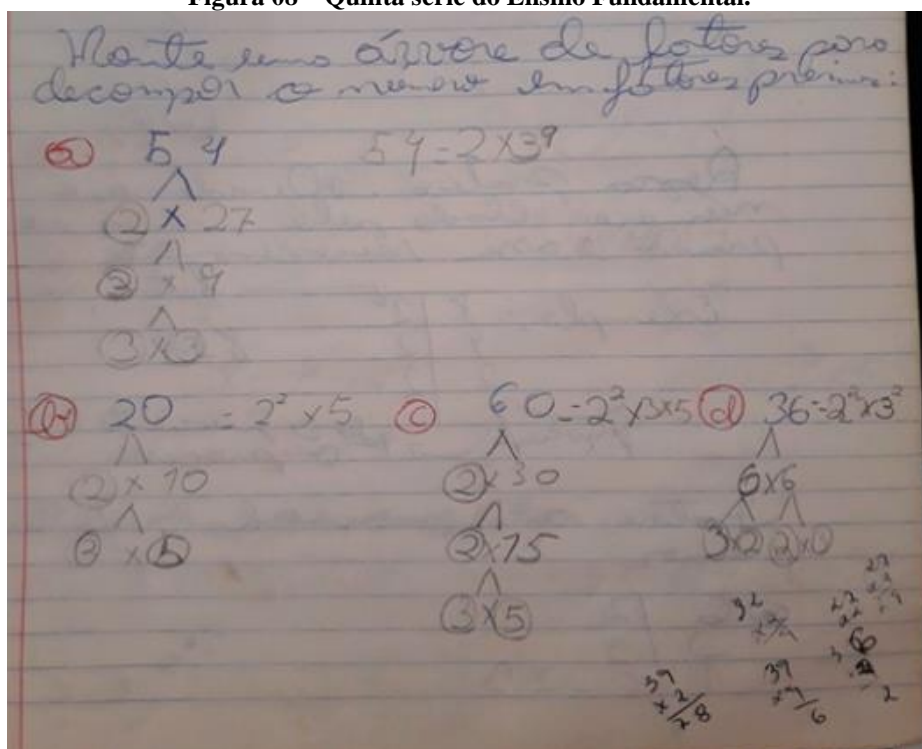 Figura 08 – Quinta série do Ensino Fundamental.
Monte uma árvore de fatores para
decompor o número em fatores primos:
a) 54 54=2x3⁹
2 x 27
3 x 9
3x3
b) 20 = 2² x 5 c) 60=2²x3x5 d) 36=2²x3²
2 x 10 2x30 6x6
2 x 5 2x15 3x2 2x3
3x5
39
x 2
78